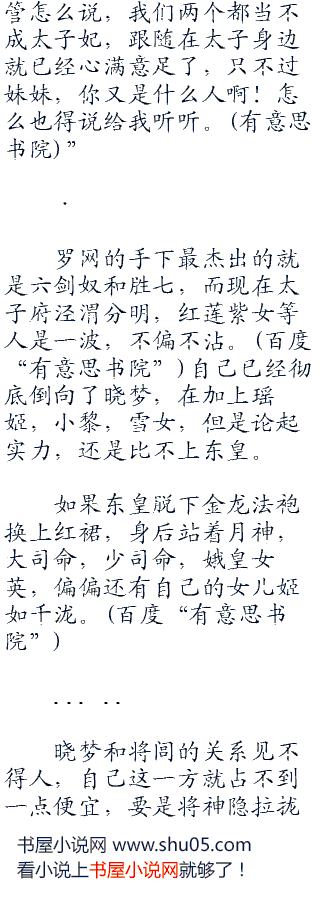 管怎么说，我们两个都当不
成太子妃，跟随在太子身边
就已经心满意足了，只不过
妹妹，你又是什么人啊！怎
么也得说给我听听。(有意思
书院)”
.
罗网的手下最杰出的就
是六剑奴和胜七，而现在太
子府泾渭分明，红莲紫女等
人是一波，不偏不沾。(百度
“有意思书院”)自己已经彻
底倒向了晓梦，在加上瑶
姬，小黎，雪女，但是论起
实力，还是比不上东皇。
如果东皇脱下金龙法袍
换上红裙，身后站着月神，
大司命，少司命，娥皇女
英，偏偏还有自己的女儿姬
如千泷。(百度“有意思书
院”)
... ..
晓梦和将闾的关系见不
得人，自己这一方就占不到
一点便宜，要是将神隐拉拢
书屋小说网 www.shu05.com
看小说上书屋小说网就够了！